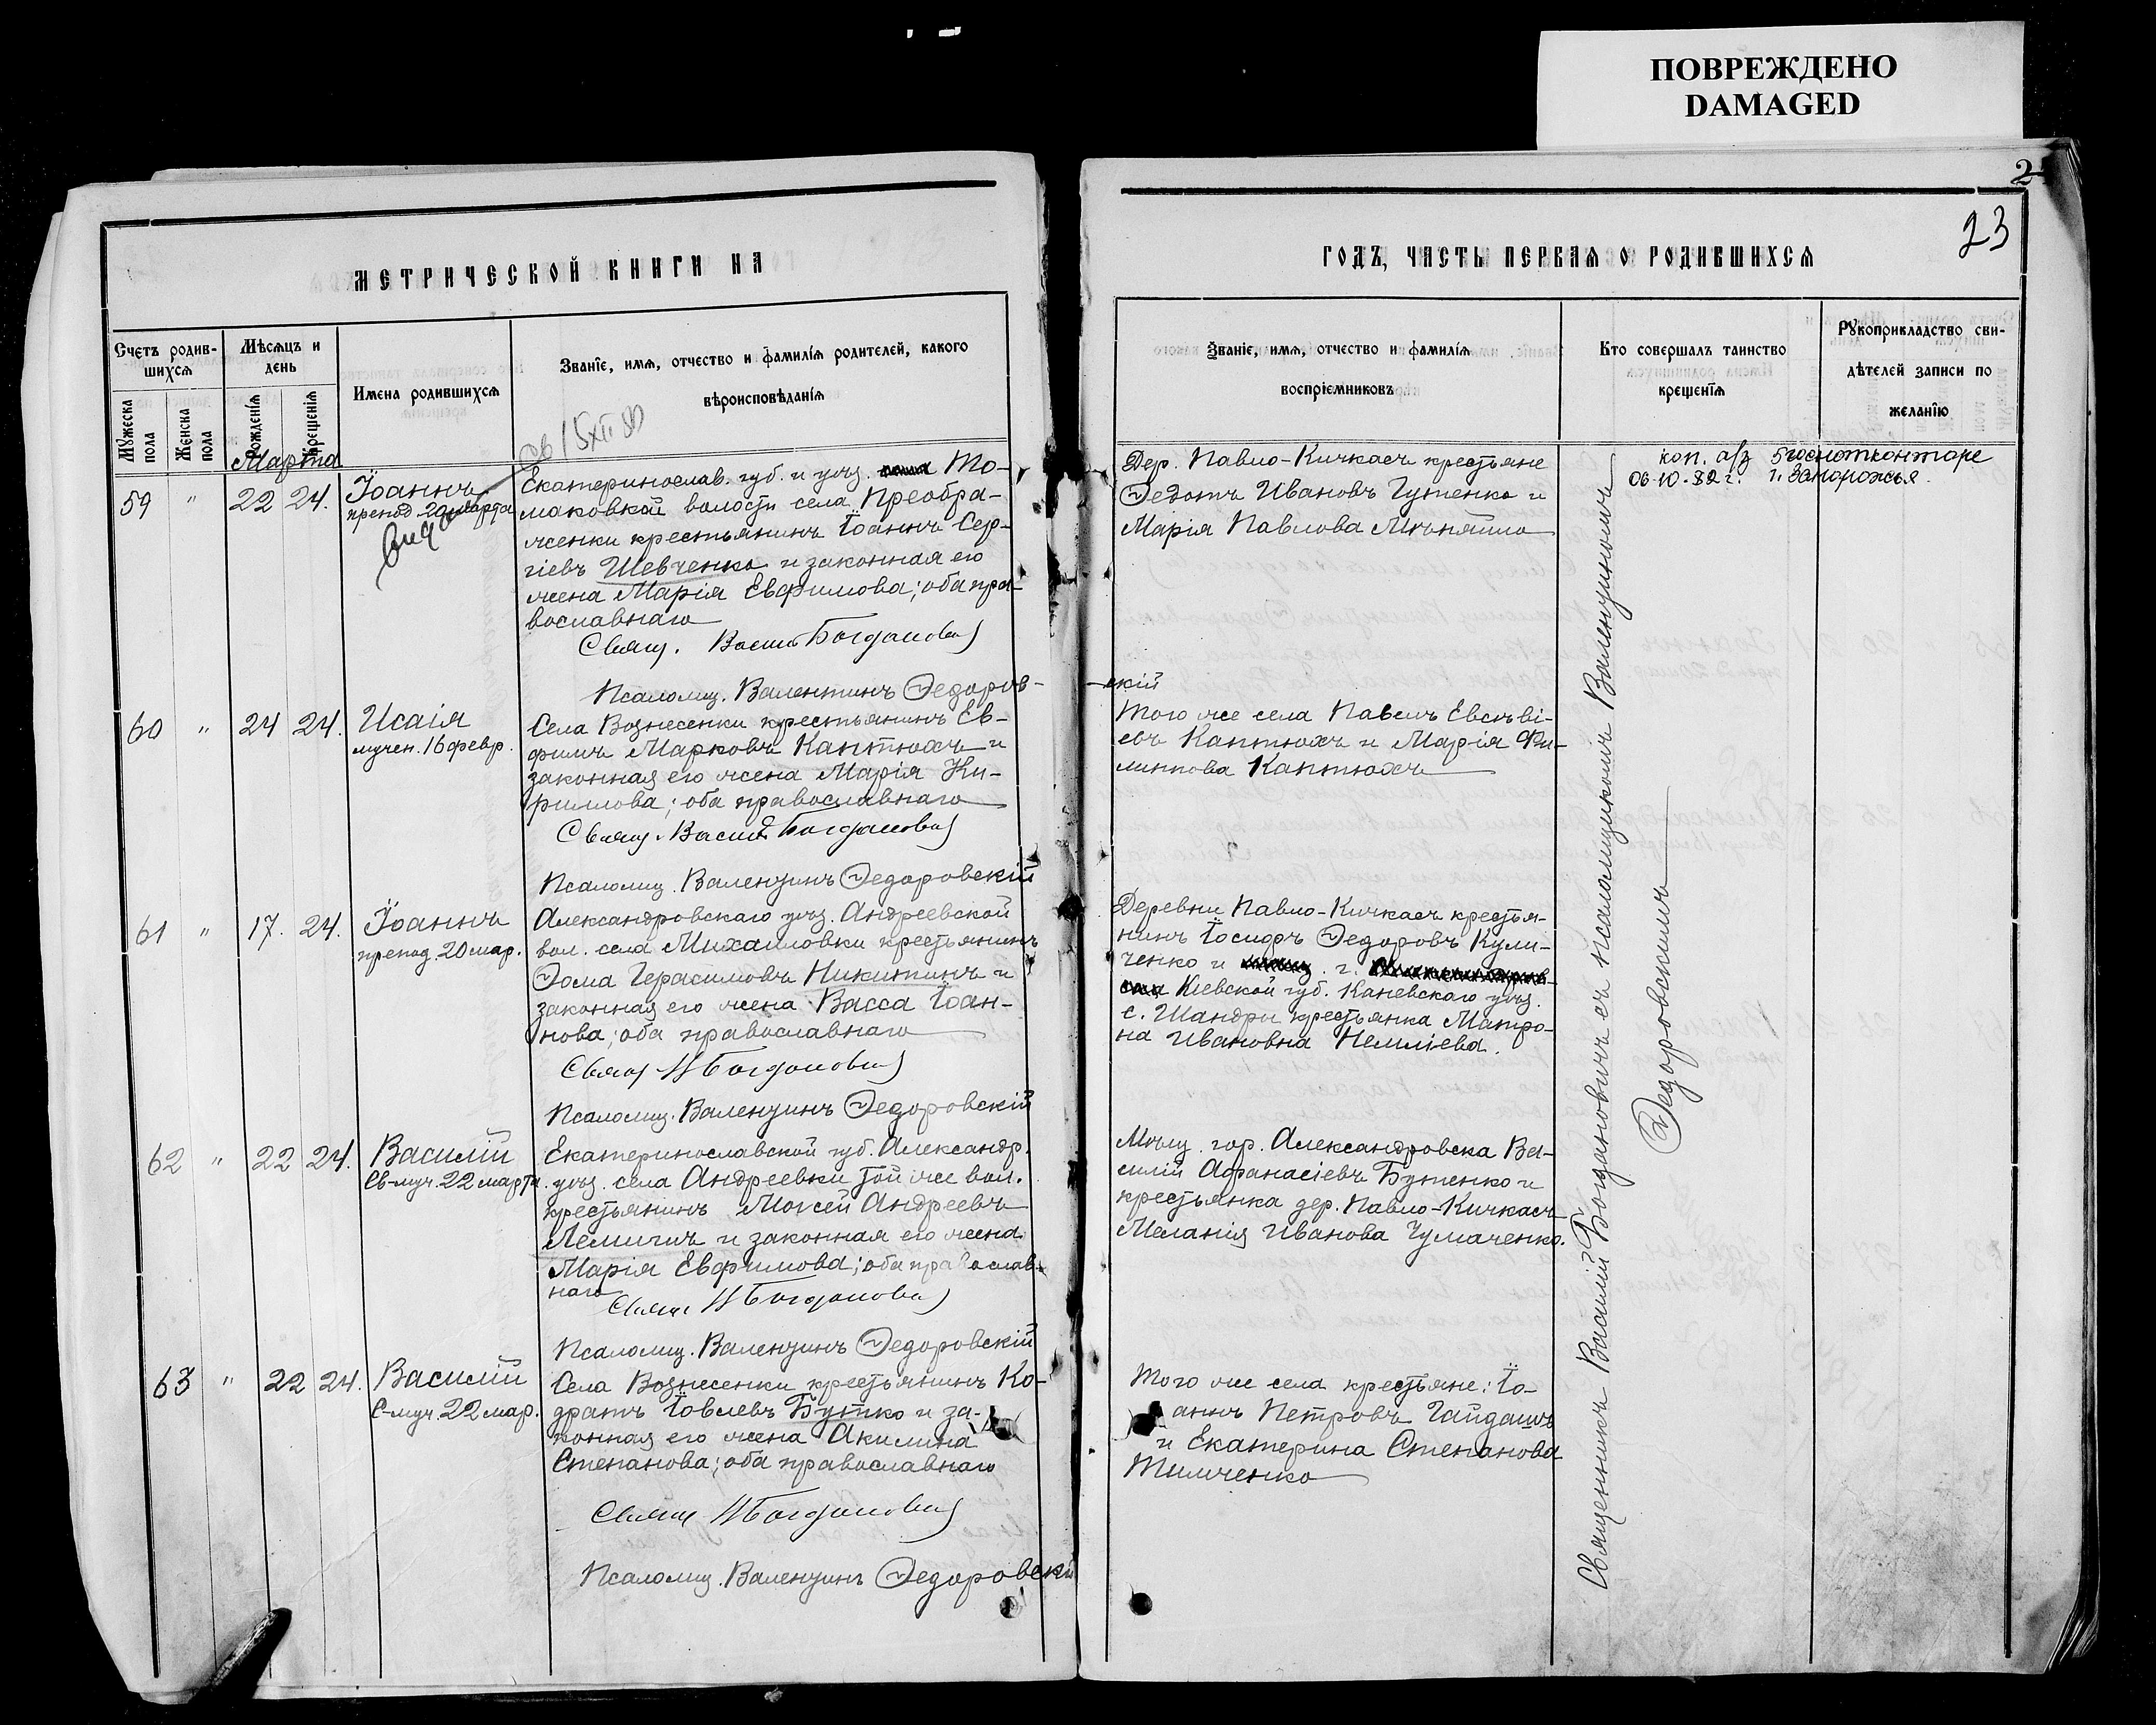 ПОВРЕЖДЕНО
DAMAGED
23
МЕТРИЧЕСКОЙ КНИГИ НА
ГОДЪ, ЧАСТЬ ПЕРВАЯ О РОДИВШИХСЯ
Счетъ родив-
шихся
Мѣсяцъ и
день
Имена родившихся
Званіе, имя, отчество и фамилія родителей, какого
вѣроисповѣданія
Мужеска
пола
Женска
пола
Рожденія
Крещенія
Званіе, имя, отчество и фамилія
воспріемниковъ
Кто совершалъ таинство
крещенія
Рукоприкладство сви-
дѣтелей записи по
желанію
Марта
59 " 22 24.
Іоаннъ
препод. 20 марта
Екатеринослав. губ. и уѣз. То-
маковкой волости села Преобра-
женки крестьянинъ Іоаннъ Сер-
гіевъ Шевченко и законная его
жена Марія Евфимова; оба пра-
вославнаго
Свящ. Васил Богданович
Псаломщ. Валентинъ Ѳедоров-
-скій
Дер. Павло-Кичкасъ крестьяне
Ѳедотъ Ивановъ Гутенко и
Марія Павлова
коп. а/з 5 госнотконторе
06-10-82 г. г. Запорожья.
60 " 24 24.
Исаія
мучен. 16 февр.
Села Вознесенки крестьянинъ Ев-
фимъ Марковъ Каптюхъ и
законная его жена Марія Ки-
риллова; оба православнаго
Свящ. Васил Богданович
Псаломщ. Валентинъ Ѳедоровскій
Того же села Павелъ Евсѣві-
евъ Каптюхъ и Марія Фи-
липпова Каптюхъ
61 " 17. 24.
Іоаннъ
препод. 20 мар.
Александровскаго уѣз. Андреевской
вол. села Михайловки крестьянинъ
Ѳома Герасимовъ Никитинъ и
законная его жена Васса Іоан-
нова; оба православнаго
Свящ В Богданович
Псаломщ. Валентинъ Ѳедоровскій
Деревни Павло-Кичкасъ крестья-
нинъ Іосифъ Ѳедоровъ Кули-
ченко и г.
Кіевской губ. Каневскаго уѣз.
с. Шандры крестьянка Матро-
на Ивановна Немліева.
62 " 22 24.
Василій
Св-муч. 22 марта.
Екатеринославской губ. Александр.
уѣз. села Андреевки той же вол.
крестьянинъ Моисей Андреевъ
Лемишъ и законная его жена
Марія Евфимова; оба православ-
наго
Свящ В Богданович
Псаломщ. Валентинъ Ѳедоровскій
Мѣщ. гор. Александровска Ва-
силій Афанасіевъ Бутенко и
крестьянка дер. Павло-Кичкасъ
Меланія Иванова Чумаченко.
63 " 22 24.
Василій
С-муч. 22 мар.
Села Вознесенки крестьянинъ Ко-
дратъ Іовлевъ Бутко и за-
конная его жена Акилина
Степанова; оба православнаго
Свящ В Богданович
Псаломщ. Валентинъ Ѳедоровскій
Того же села крестьяне: Іо-
аннъ Петровъ Гайдашъ
и Екатерина Степанова
Тимченко
Священникъ Василій Богдановичъ съ псаломщикомъ Валентиномъ
Ѳедоровскимъ